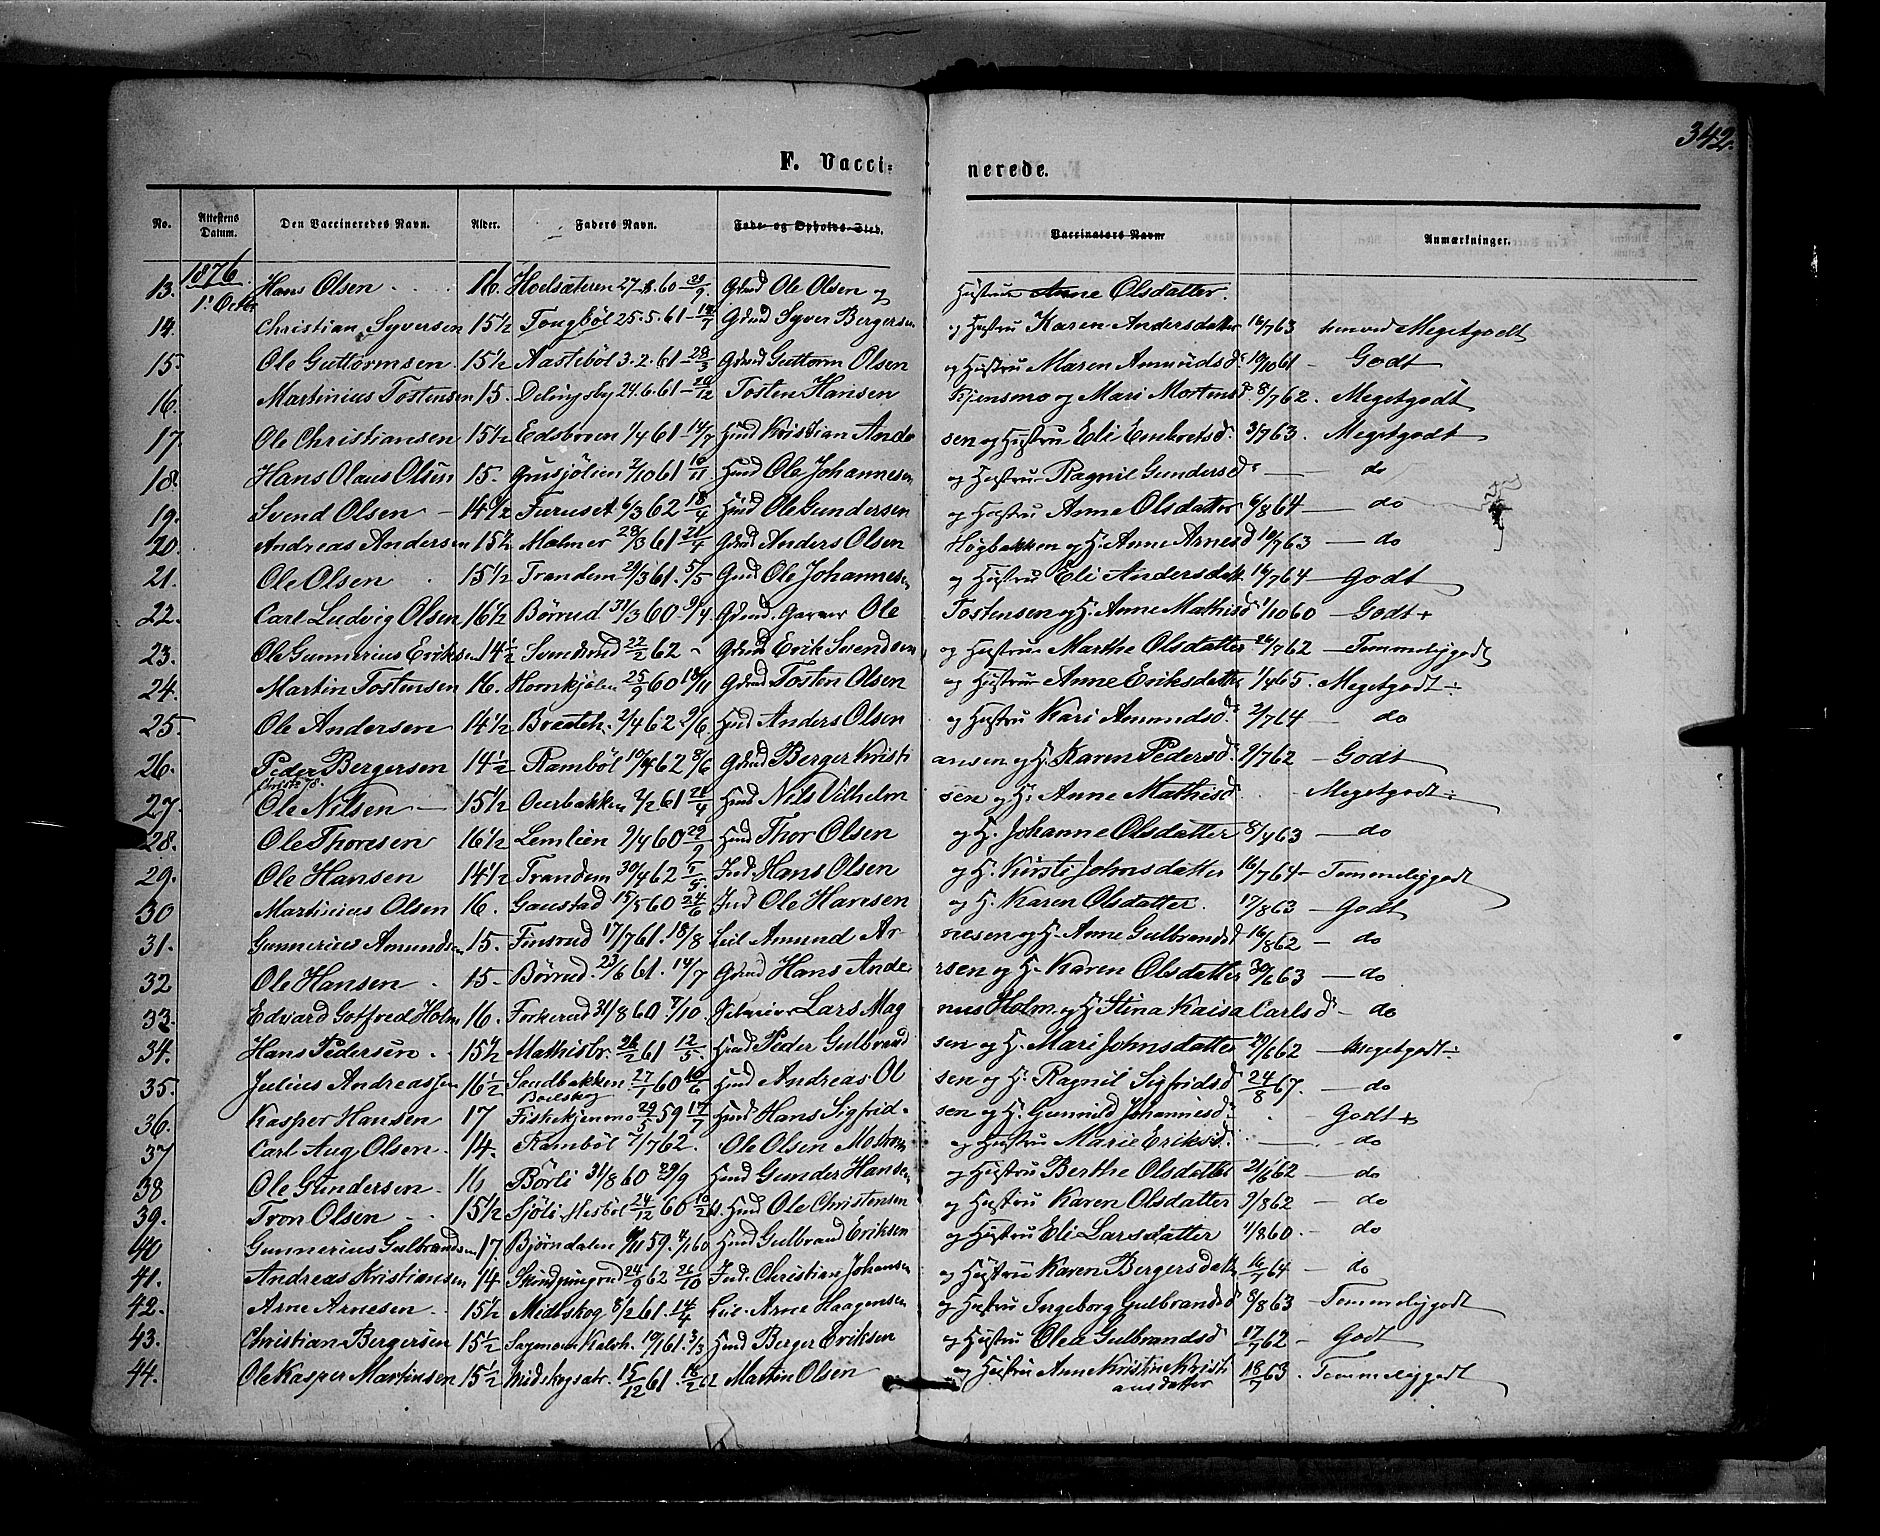 342.
F. Vacci- nerede.
No. Attestens Datum. Den Vaccineredes Navn. Alder. Faders Navn. Føde- og Opholds-Sted. Vaccinators Navn Anmærkninger.
1876
13. 1' Octbr Hans Olsen 16. Hoelsæteren 27-8.60 Gbrud Ole Olsen og Hustrue Anne Olsdatter.
14. Christian Syversen 15½ Tongböl 25.5.61 Gbrud Syver Bergersen og Hustru Karen Andersdatter 16/763 Megetgodt
15. Ole Guttormsen 15½ Aasteböl 3.2.61-28/3 Gbrud Guttorm Olsen og Hustru Maren Amundsd. 10/1061 Godt
16. Martinius Tostensen 15. Delingsby 24.6.61 Tosten Hansen og Mari Mortensd. 8/762. Megetgodt
17. Ole Christiansen 15½ Edsbroen 1/4 61-14/7 Hmd Kristian Ande sen og Hustru Eli Embretsd. 3/763. Megetgodt
18. Hans Olaus Olsen 15. Grusjölien 2/1061 10/11 Hmd Ole Johannesen og Hustru Ragnil Gundersd. do
19. Svend Olsen 14½ Furuset 6/3 62 18/4 Hmd Ole Gundersen og Hustru Anne Olsdatter 6/864 do
20. Andreas Andersen 15½ Malmer 29/361 21/4 Gbrud Anders Olsen Högbakken og H. Anne Arnesd 10/763 do
21. Ole Olsen 15½ Trandem 29/361. 5/5 Gmd Ole Johannesen og Hustru Eli Andersdatt. 16/764 Godt
22. Carl Ludvig Olsen 16½ Börud 31/3 60 9/4 Gbrud. Garver Ole Tostensen og H. Anne Mathisd 1/1060 Godt+
23. Ole Gunnerius Eriksen 14½ Svendrud 22/2 62 Gbrud Erik Svendsen og Hustrue Marthe Olsdatter 26/762 Temmeligodt
24. Martin Tostensen 16. Hornkjölen 25/9 60 18/11 Gbrud Tosten Olsen og Hustrue Anne Eriksdatter 1/465. Megetgodt÷
25. Ole Andersen 14½ Braateh. 2/4 62. 9/6. Hmd Anders Olsen og Hustru Kari Amundsd. 2/764 do
26. Peder Bergersen 14½ Ramböl 10/4 62 8/6 Gbrud Berger Kristi ansen og H. Karen Pedersd. 9/762 Godt
27. Ole Nilsen 15½ Ourbakken 2/2 61 21/4 Hmd Nils Vilhelm sen og H. Anne Mathisd. Megetgodt÷
28. Ole Thoresen 16½ Lemlien 9/4 60 29/9 Hmd Thor Olsen og H. Johanne Olsdatter 8/463 do
29. Ole Hansen 14½ Trandem 30/4 62 Ind Hans Olsen og H. Kirsti Johnsdatter 16/764 Temmeligodt
30 Martinius Olsen 16. Gaustad 15/5 60 24/6 Ind Ole Hansen og H. Karen Olsdatter. 17/863 Godt
31. Gunnerius Amundsen 15. Finsrud 17/761. 18/8 Leil Amund Ar nesen og H. Anne Gulbrandsd 16/862 do
32 Ole Hansen 15 Börud. 23/6 61. 14/7 Gbrud Hans Ande rsen og H. Karen Olsdatter 30/663 do
33. Edvard Gotfred Holm 16. Forkerud 31/8 60 7/10. Lars Mag nus Holm og H. Stina Kaisa Carlsd. do
34. Hans Pedersen 15½ Mathisbr. 26/2 61 12/5. Hmd Peder Gulbrand sen og H. Mari Johnsdatter 29/662 Megetgodt÷
35. Julius Andreassen 16½ Sandbakken 27/1 60 10/6 Hmd Andreas Ol sen og H. Ragnil Sigfridsd 24/8 67. do
36. Kasper Hansen 17 Fiskekjenmo 29/5 59 17/7 Hmd Hans Sigfrid- sen og H. Gunnild Johannesd. Godt+
37 Carl Aug Olsen. 14. Ramböl 7/762. Ole Olsen Mostrom og Hustru Marie Eriksd. do
38 Ole Gundersen 16 Börli 31/8 60 29/9 Hmd Gunder Hansen og Hustru Berthe Olsdatter 21/662 do
39. Tron Olsen 15½ Sjöli Hesböl 24/12 60 10/2 61. Hmd Ole Christensen og Hustru Karen Olsdatter 9/862 do
40 Gunnerius Gulbrandsen 17. Bjørndalen 59. 4/160 Hmd Gulbrand Eriksen og Hustru Eli Larsdatter 4/860. do
41. Andreas Kristiansen 14 24/9 62 26/10 Ind. Christian Johansen og Hustru Karen Bergersdatt. 16/7 64 do
42. Arne Arnesen 15½ Midtskog 8/2 61. 14/4 Leil. Arne Haagensen og Hustru Ingeborg Gulbrandsd 8/863 Temmeligodt
43. Christian Bergersen 15½ 10/161. 3/3 Hmd Berger Eriksen og Hustru Olea Gulbrandsd. 17/7 62 Godt
44. Ole Kasper Martinsen 15½ Midskogsætr. 15/12 61. 16/2 62 Martin Olsen og Hustru Anne Kristine Kristi ansdatter 18/7 63 Temmeligodt